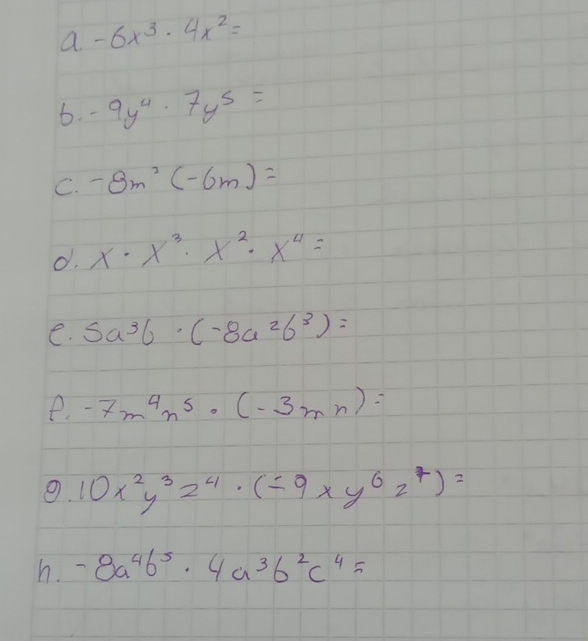 a. -6x³ · 4x² =
b. -9y⁴ · 7y⁵ =
c. -8m³ (-6m) =
d. x · x³ · x² · x⁴ =
e. 5a³b · (-8a²b³) =
f. -7m⁴n⁵ · (-3mn) =
g. 10x²y³z⁴ · (-9xy⁶z⁷) =
h. -8a⁴b⁵ · 4a³b²c⁴ =